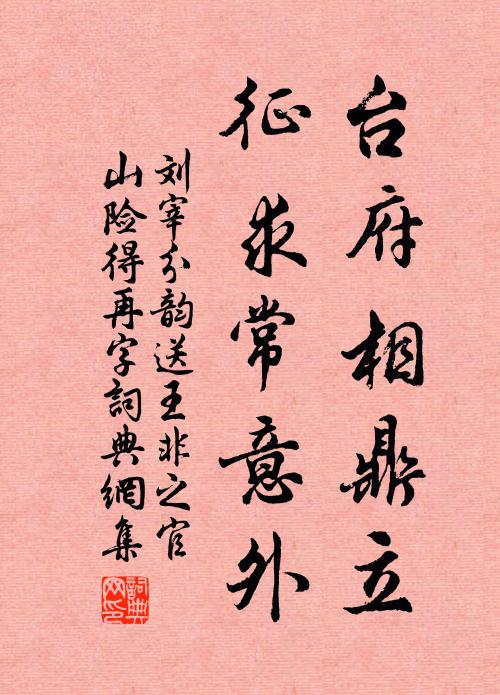 台府相鼎立
征求常意外
刘宰分韵送王非之官
山险得再字詞典網集
詞典網印